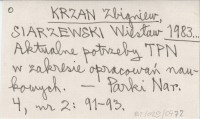 KRZAN Zbigniew,
SIARZEWSKI Wiesław 1983...
Aktualne potrzeby TPN
w zakresie opracowań nau-
kowych. — Parki Nar.
4, nr 2: 91-93.